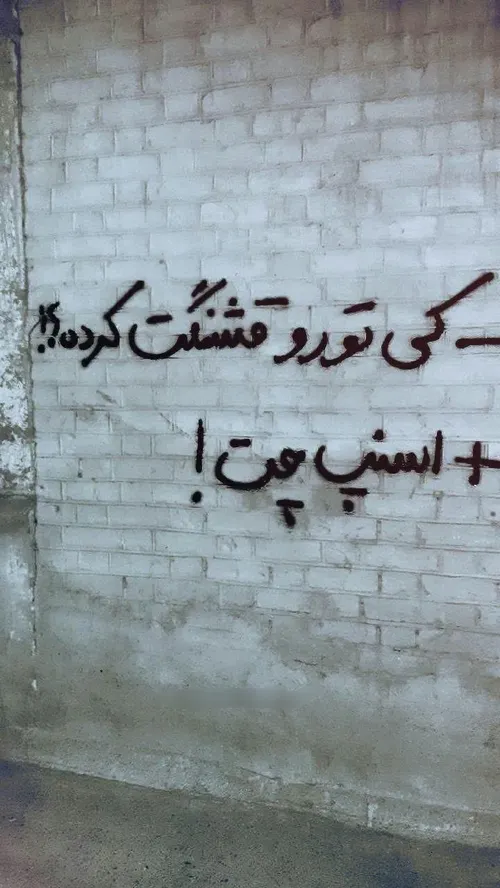 - کی تو رو قشنگت کرده؟!
+ اسنپ چت!